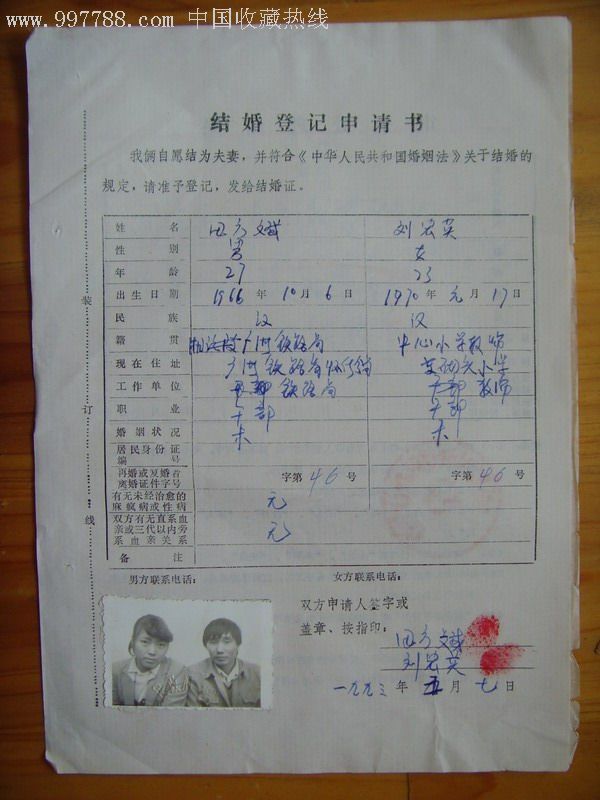 www.997788.com 中国收藏热线
结婚登记申请书
我俩自愿结为夫妻，并符合《中华人民共和国婚姻法》关于结婚的
规定，请准予登记，发给结婚证。
姓名 田方斌 刘宏英
性别 男 女
年龄 27 23
出生日期 1966年10月6日 1970年元月17日
民族 汉 汉
籍贯 广州铁路局 中心小学教师
现在住址 广州铁路局 小学
工作单位 铁路局 干部 教师
职业 干部 干部
婚姻状况 未 未
居民身份证
编号
再婚或复婚者
离婚证件字号 字第46号 字第46号
有无未经治愈的
麻疯病或性病 无
双方有无直系血
亲或三代以内旁
系血亲关系 无
备注
男方联系电话： 女方联系电话：
双方申请人签字或
盖章、按指印：
田方斌
刘宏英
一九九三年五月七日
装
订
线